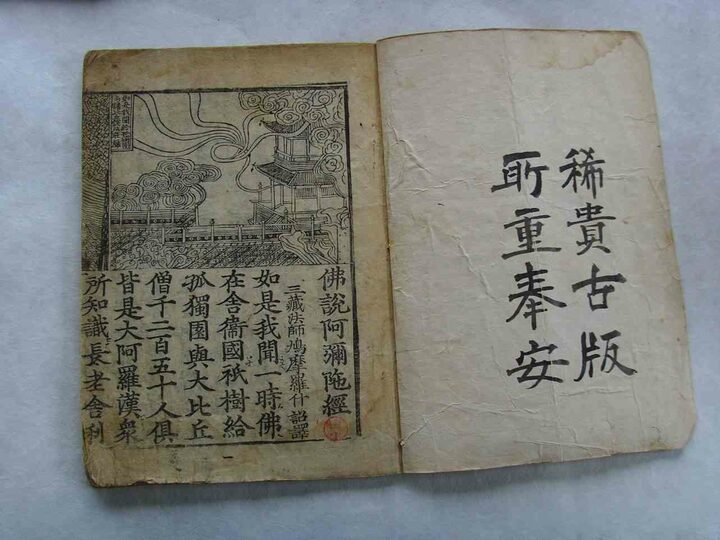 稀貴古版
所重奉安
佛說阿彌陁經
三藏法師鳩摩羅什 詔譯
如是我聞一時佛
在舍衛國祇樹給
孤獨園與大比丘
僧千二百五十人俱
皆是大阿羅漢衆
所知識長老舍利
一